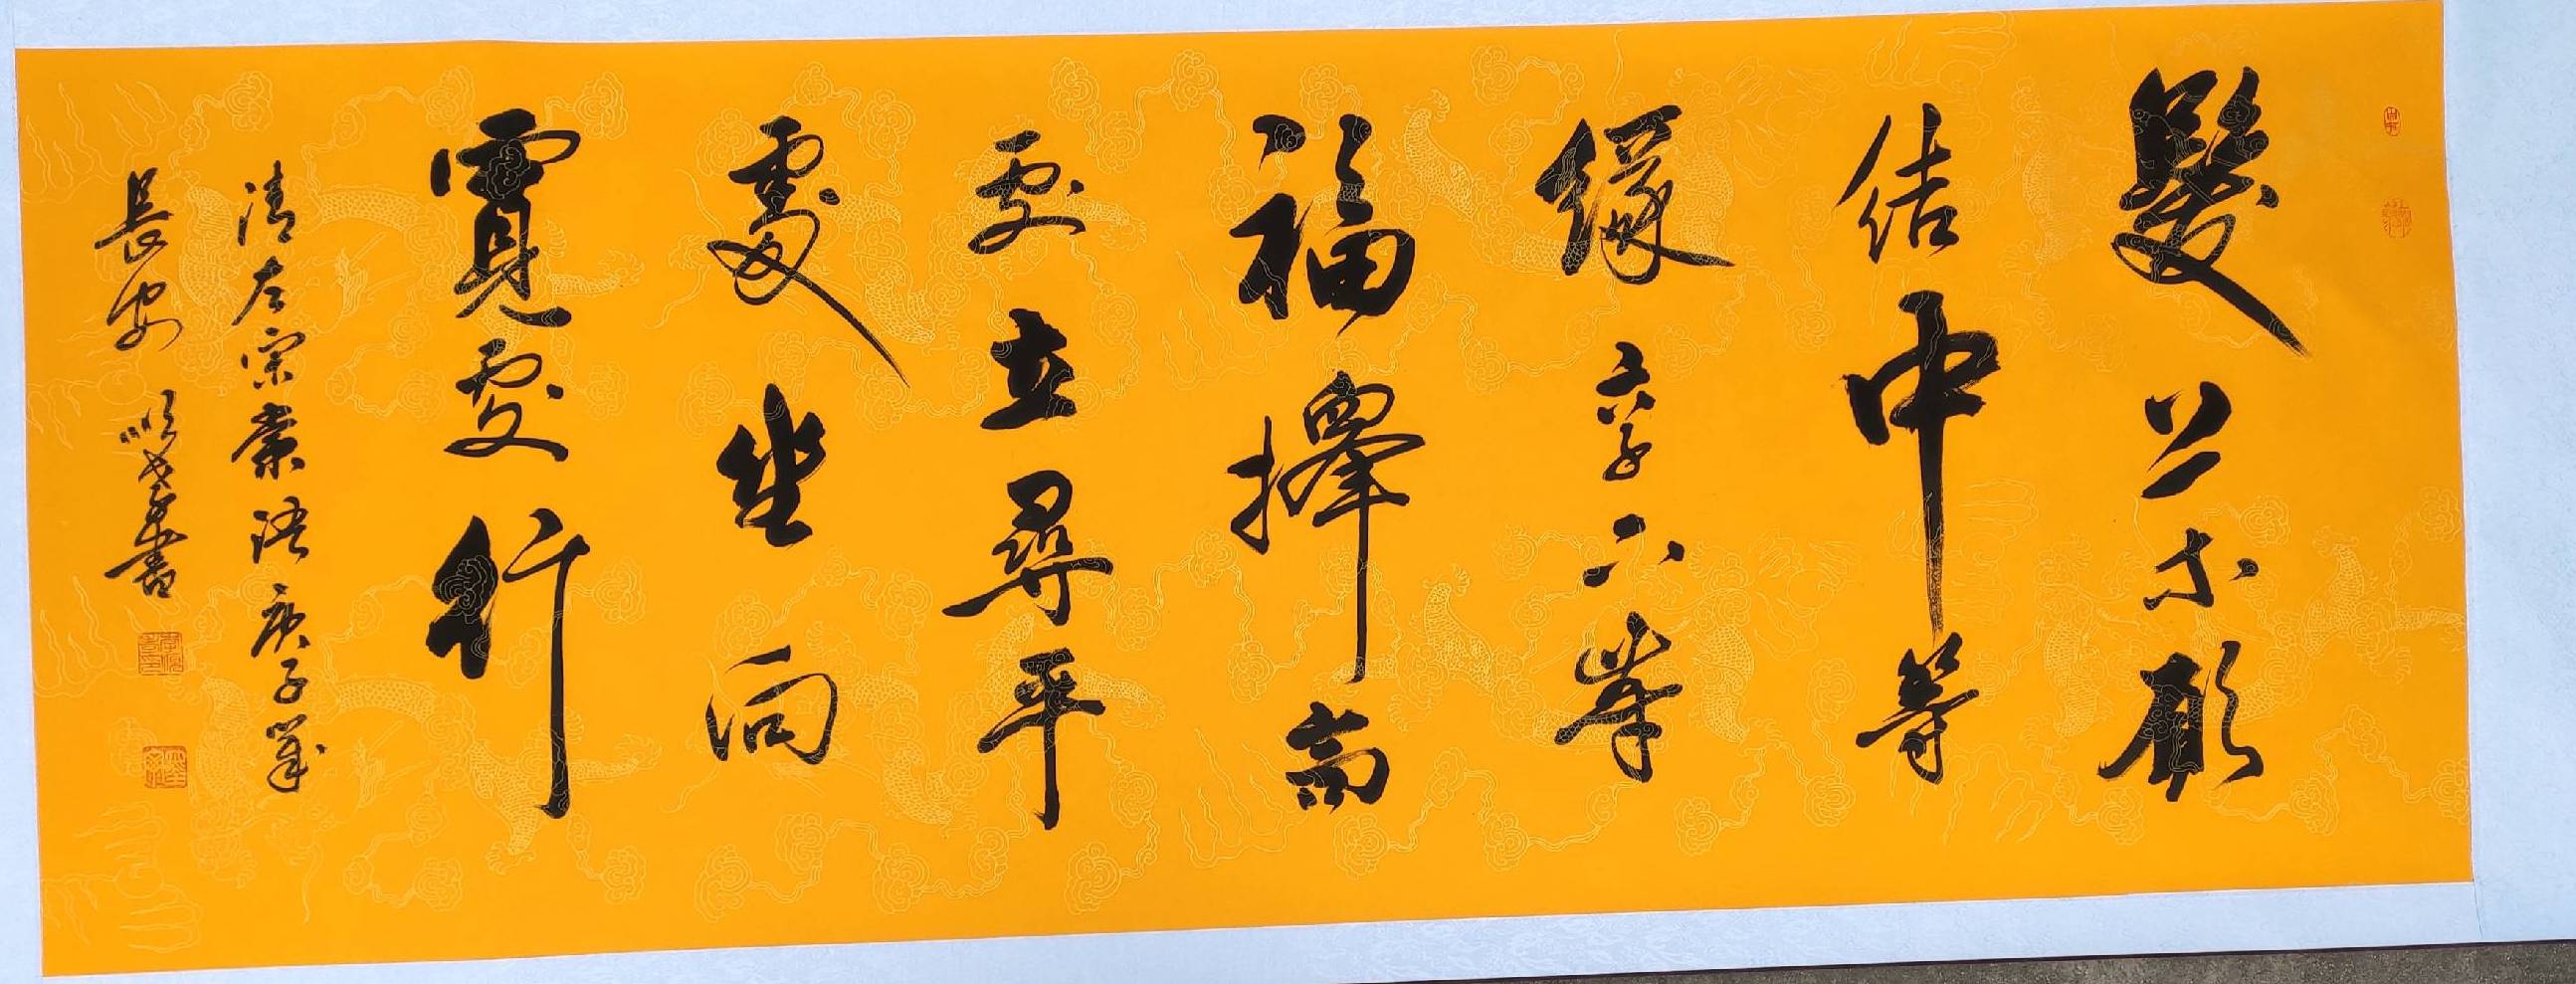 發上等願
結中等
緣享下等
福擇高
處立尋平
處坐向
寬處行
清左宗棠語庚子歲
長安 書